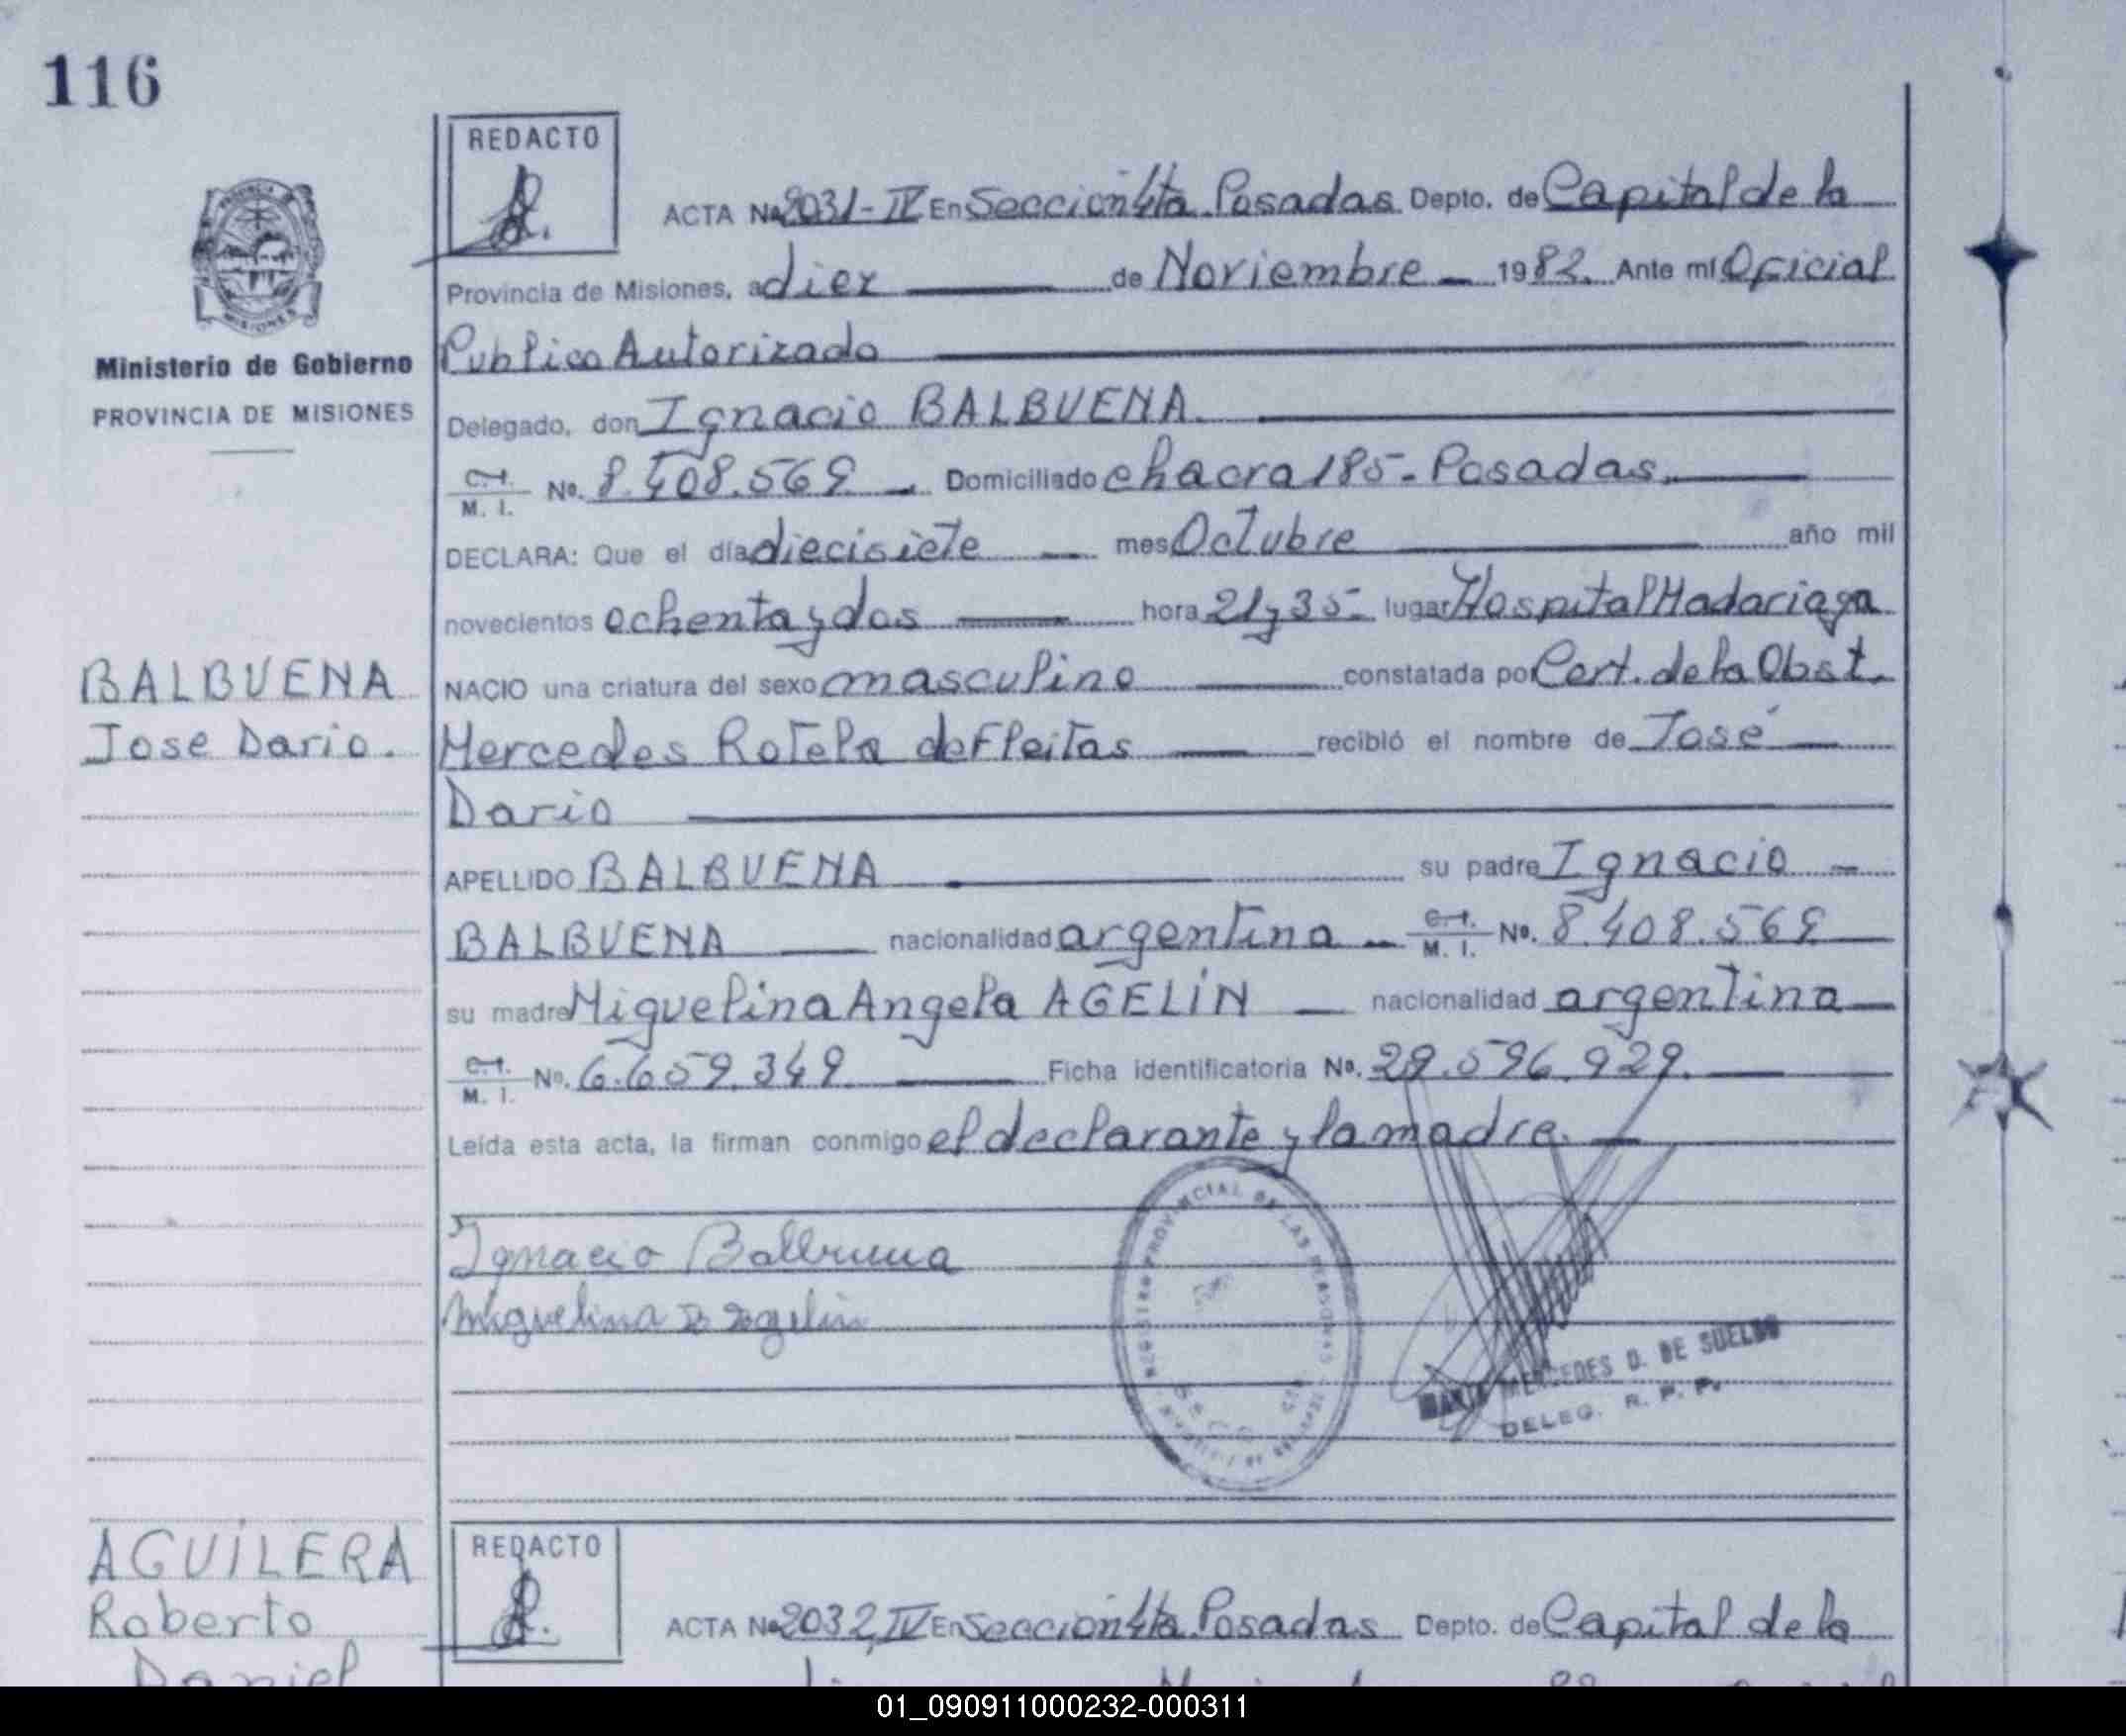 116
REDACTO
ACTA No 2031-IV En Sección 4ta. Posadas Depto. de Capital de la
Provincia de Misiones, a diez de Noviembre 1982. Ante mí Oficial
Publico Autorizado
Ministerio de Gobierno
PROVINCIA DE MISIONES
Delegado, don Ignacio BALBUENA.
C.I. M. I. No. 8.408.569 Domiciliado chacra 185 - Posadas.
DECLARA: Que el día diecisiete mes Octubre año mil
novecientos ochenta y dos hora 21 y 35 lugar Hospital Madariaga
BALBUENA
NACIO una criatura del sexo masculino constatada por Cert. de la Obst.
Jose Dario.
Mercedes Rotela de Fleitas recibió el nombre de José
Dario
APELLIDO BALBUENA su padre Ignacio
BALBUENA nacionalidad argentina C.I. M. I. No. 8.408.569
su madre Miguelina Angela AGELÍN nacionalidad argentina
C.I. M. I. No. 6.659.349 Ficha identificatoria No. 29.596.929.
Leída esta acta, la firman conmigo el declarante y la madre.
Ignacio Balbuena
Miguelina
REGISTRO PROVINCIAL DE LAS PERSONAS
MARIA MERCEDES D. DE SUELDO
DELEG. R. P. P.
AGUILERA
Roberto
Daniel
REDACTO
ACTA No 2032, IV En Sección 4ta. Posadas Depto. de Capital de la
01_090911000232-000311